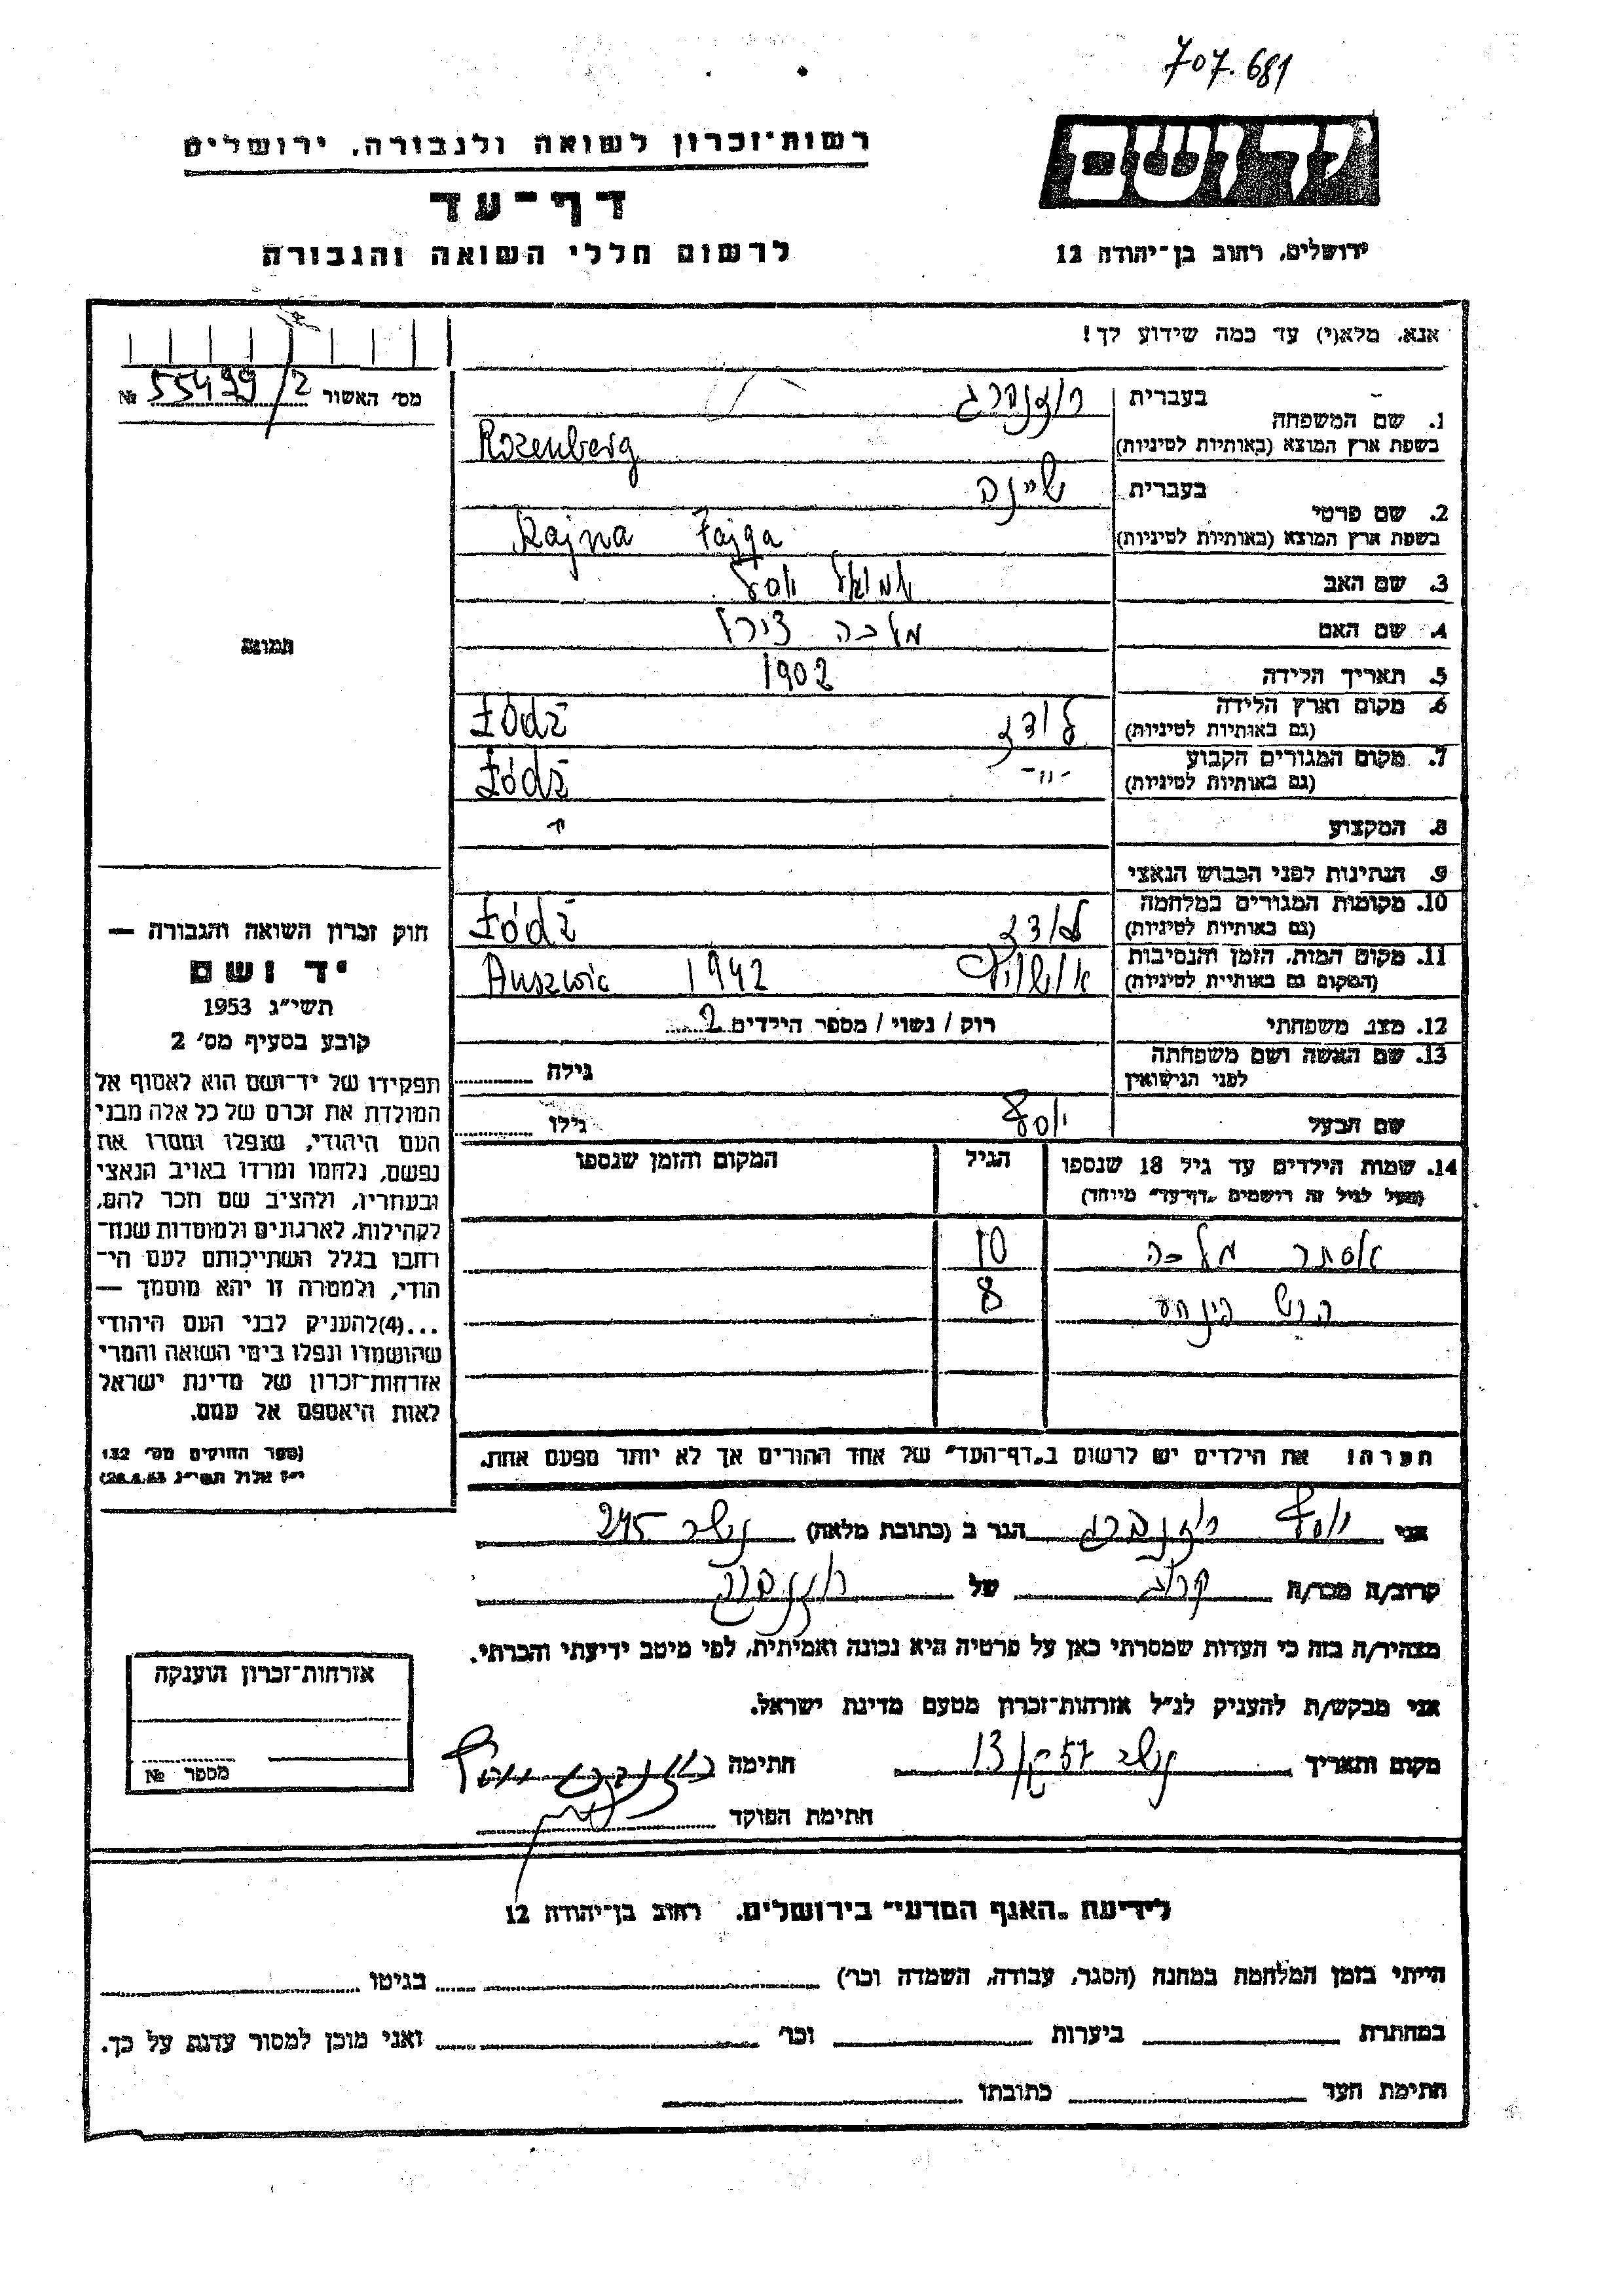 707.681
יד ושם
רשות־זכרון לשואה ולגבורה, ירושלים
דף־עד
לרשום חללי השואה והגבורה
ירושלים, רחוב בן־יהודה 12
אנא, מלא(י) עד כמה שידוע לך!
מס׳ האשור 55499/2 №
1. שם המשפחה
בעברית רוזנברג
בשפת ארץ המוצא (באותיות לטיניות) Rozenberg
2. שם פרטי
בעברית שיינה
בשפת ארץ המוצא (באותיות לטיניות) Szajna Fajga
3. שם האב שמואל יוסף
4. שם האם מלכה צירל
5. תאריך הלידה 1902
6. מקום וארץ הלידה
(גם באותיות לטיניות) לודז Łódź
7. מקום המגורים הקבוע
(גם באותיות לטיניות) -"- Łódź
8. המקצוע
9. הנתינות לפני הכבוש הנאצי
10. מקומות המגורים במלחמה
(גם באותיות לטיניות) לודז Łódź
11. מקום המות, הזמן והנסיבות
(המקום גם באותיות לטיניות) אושויץ 1942 Auszwic
12. מצב משפחתי רוק / נשוי / מספר הילדים 2
13. שם האשה ושם משפחתה
לפני הנישואין גילה
שם הבעל יוסף גילו
14. שמות הילדים עד גיל 18 שנספו
(מעל לגיל זה רושמים „דף־עד״ מיוחד)
הגיל
המקום והזמן שנספו
אסתר מלכה 10
הרש פינחס 8
תמונה
חוק זכרון השואה והגבורה —
יד ושם
תשי״ג 1953
קובע בסעיף מס׳ 2
תפקידו של יד־ושם הוא לאסוף אל
המולדת את זכרם של כל אלה מבני
העם היהודי, שנפלו ומסרו את
נפשם, נלחמו ומרדו באויב הנאצי
ובעוזריו, ולהציב שם וזכר להם,
לקהילות, לארגונים ולמוסדות שנח־
רבו בגלל השתייכותם לעם הי־
הודי, ולמטרה זו יהא מוסמך —
...(4)להעניק לבני העם היהודי
שהושמדו ונפלו בימי השואה והמרי
אזרחות־זכרון של מדינת ישראל
לאות היאספם אל עמם.
(ספר החוקים מס׳ 132
י״ז אלול תשי״ג 28.8.53)
הערה! את הילדים יש לרשום ב„דף־העד״ של אחד ההורים אך לא יותר מפעם אחת.
אני יוסף רוזנברג הגר ב (כתובת מלאה) נשר 245
קרוב/ה מכר/ה קרוב של רוזנברג
מצהיר/ה בזה כי העדות שמסרתי כאן על פרטיה היא נכונה ואמיתית, לפי מיטב ידיעתי והכרתי.
אני מבקש/ת להעניק לנ״ל אזרחות־זכרון מטעם מדינת ישראל.
מקום ותאריך נשר חתימה רוזנברג יוסף
חתימת הפוקד
אזרחות־זכרון הוענקה
מספר №
לידיעת „האגף המדעי״ בירושלים, רחוב בן־יהודה 12
הייתי בזמן המלחמה במחנה (הסגר, עבודה, השמדה וכו׳) בגיטו
במחתרת ביערות וכו׳ ואני מוכן למסור עדות על כך.
חתימת העד כתובתו